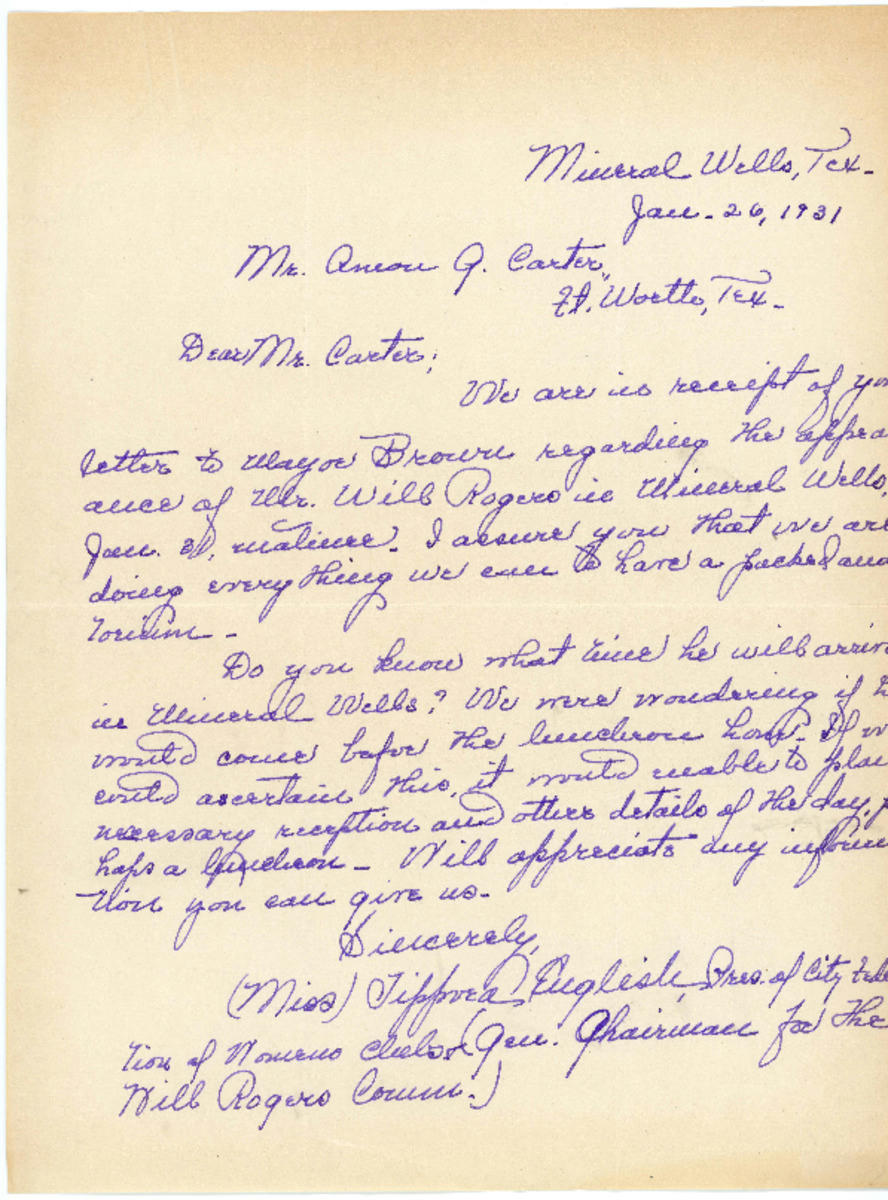 Mineral Wells, Tex-
Jan. 26, 1931
Mr. Amon G. Carter,
Ft. Worth, Tex-
Dear Mr. Carter;
We are in receipt of you
letter to Mayor Brown regarding the appear
ance of Mr. Will Rogers in Mineral Wells,
Jan. 31, matinee. I assure you that we are
doing everything we can to have a packed aud
torium-
Do you know what time he will arriv
in Mineral Wells? We were wondering if h
would come before the luncheon hour. If w
could ascertain this, it would enable to plan
necessary reception and other details of the day, p
haps a luncheon - Will appreciate any informa
tion you can give us-
Sincerely,
(Miss) English, Pres. of City Fede
tion of Womens clubs & (Gen. Chairman for the
Will Rogers Comm.)